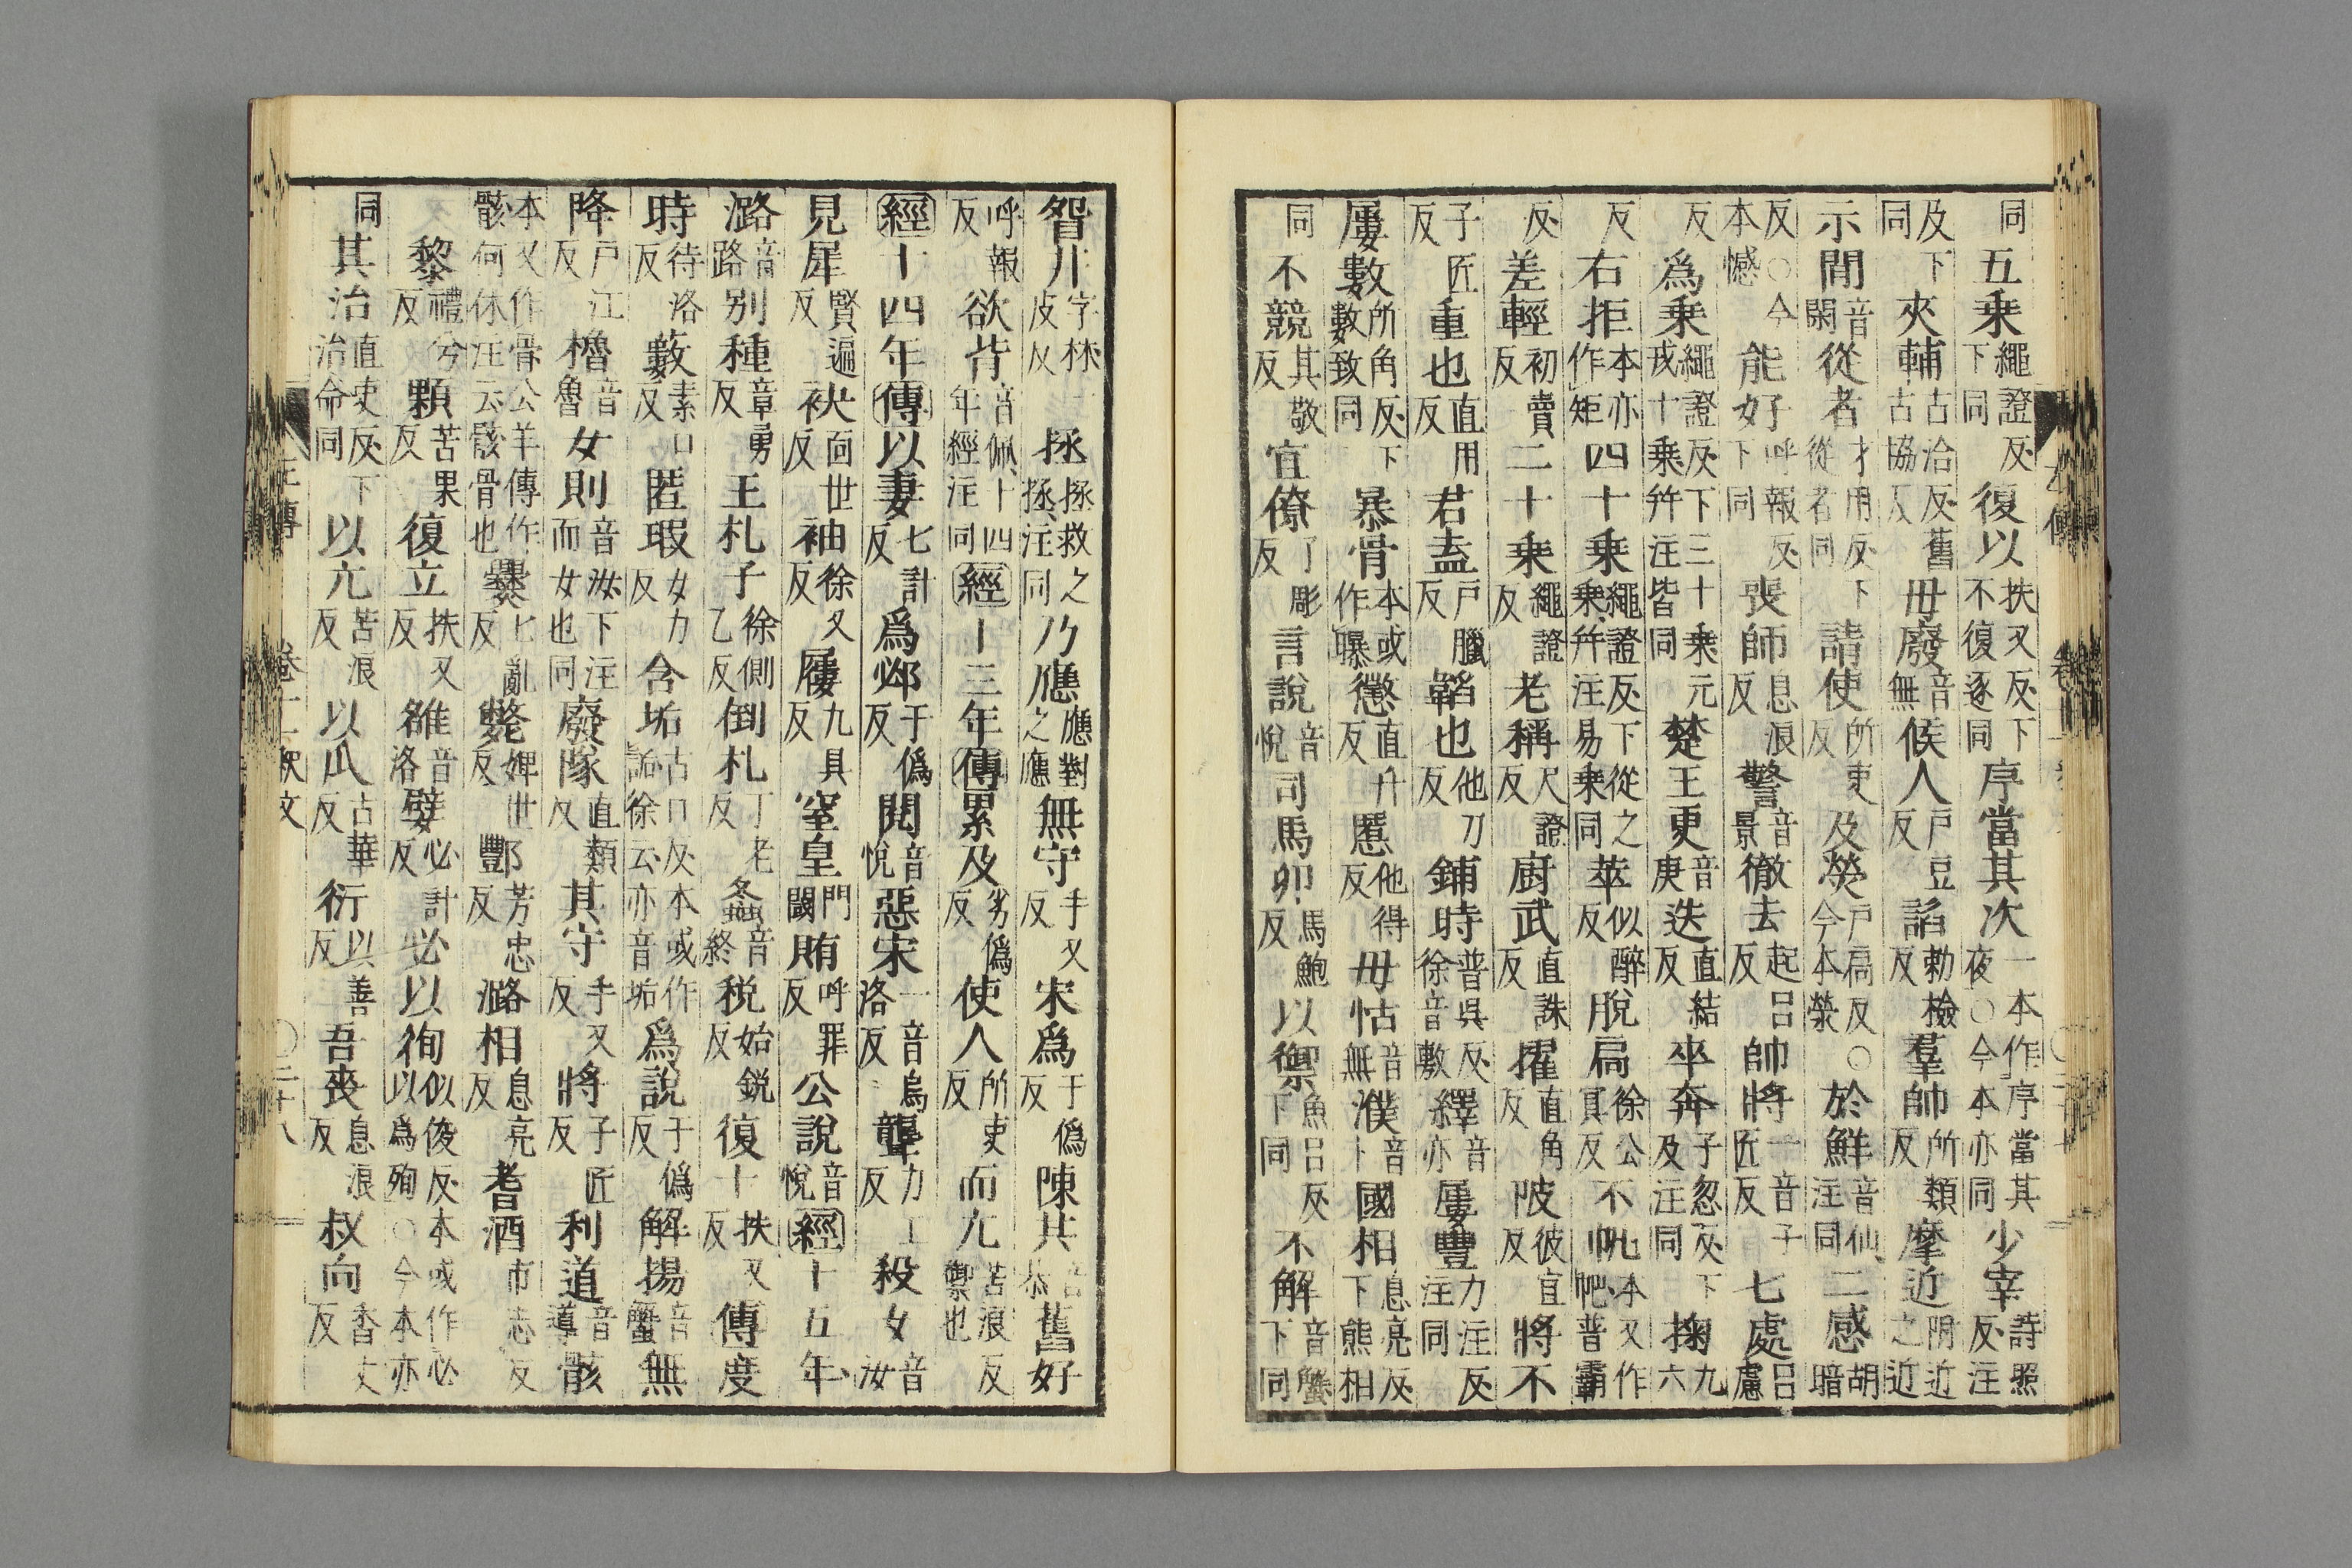 同五乗繩證反下同復以扶又反下不復逐同序當其次一本作序當其夜○今本亦同少宰詩照反注
及下同夾輔古洽反舊古協反毋廢音無候人戶豆反諂勅檢反羣帥所類反摩近附近之近
示閒音閑從者才用反下從者同請使所吏反及熒戶扃反○今本滎於鮮音仙注同二感胡暗
反○今本憾能好呼報反下同喪師息浪反警音景徹去起呂反帥將一音子匠反七處呂慮
反爲乗繩證反下三十乗元戎十乗幷注皆同楚王更音庚迭直結反卒奔子忽反下及注同掬九六
反右拒本亦作矩四十乗繩證反下從之乗幷注易乗同萃似醉反脫扃徐公冥反不帆本又作帊普霸
反差輕初賣反二十乗繩證反老稱尺證反廚武直誅反擢直角反陂彼宜反將不
子匠反重也直用反若盍戶臘反韜也他刀反鋪時普吳反徐音敷繹音亦屢豐力注反注同
屢數所角反下數致同暴骨本或作曝懲直升反慝他得反毋怙音無濮音卜國相息亮反下熊相
同不競其敬反宜僚了彫反言說音悅司馬卯馬鮑反以禦魚呂反下同不解音蟹下同
眢井字林皮反拯拯救之拯注同乃應應對之應無守手又反宋爲于偽反陳共音恭舊好
呼報反欲背音佩十四年經注同經十三年傳累及劣偽反使人所吏反而亢苦浪反禦也
經十四年傳以妻七計反爲鄋于偽反閱音悅惡宋一音烏洛反聾力工反殺女音汝
見犀賢遍反袂面世反袖徐又反屨九具反窒皇門闕賄呼罪反公說音悅經十五年
潞音路別種章勇反王札子徐側乙反倒札丁老反螽音終稅始銳反復十扶又反傳度
時待洛反藪素口反匿瑕女力反含垢古口反本或作詬徐云亦音垢爲說于偽反解揚音蟹無
降戶江反櫓音魯女則音汝下注而女也同廢隊直類反其守手又反將子匠反利道音導骸
本又作骨公羊傳作骸何休注云骸骨也爨七亂反斃婢世反酆芳忠反潞相息亮反耆酒市志反
黎禮兮反顆苦果反復立扶又反雒音洛嬖必計反必以徇似俊反本或作必以爲殉○今本亦
同其治直吏反下治命同以亢苦浪反以瓜古華反衍以善反吾喪息浪反叔向香丈反